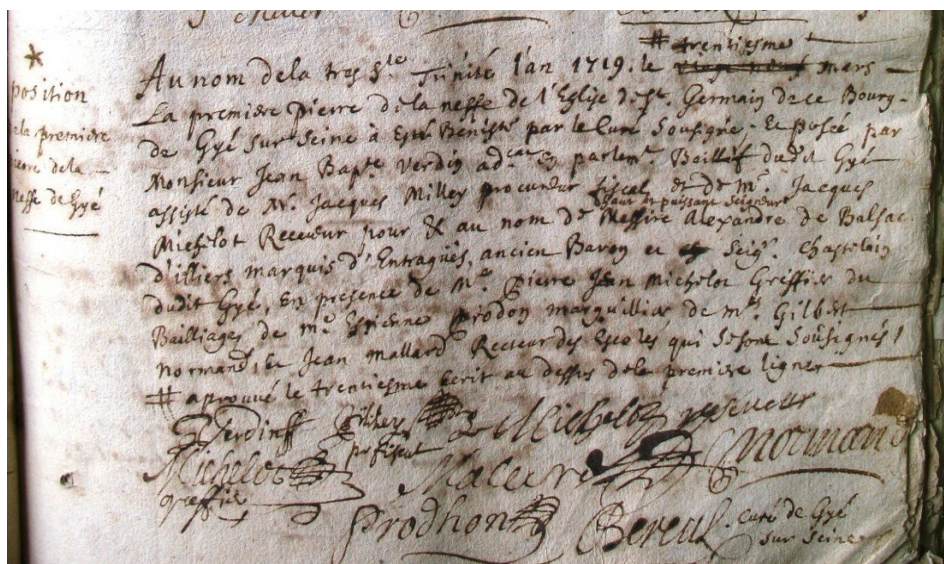 *
position
de la première
pierre de la
neffe de Gyé
# trentiesme
Au nom de la tres Ste Trinité l'an 1719. le mars
La première pierre de la neffe de l'Eglise de St. Germain de ce Bourg
de Gyé sur Seine à esté Beniste par le Curé Sousigné. Et posée par
Monsieur Jean Bapte Verdin adcat en parlemt. Baillif dudit Gyé
assisté de Mr. Jacques Milley procureur fiscal et de mr. Jacques
haut et puissant Seigneur
Michelot Receveur pour & au nom de Messire Alexandre de Balsac
d'illiers marquis d'Entragues, ancien Baron et Seigr. Chastelain
dudit Gyé, En presence de Me. Pierre Jean Michelot Greffier du
Bailliage, de me Estienne Prodon marguillier de mrs Gilbert
Normand, et Jean Mallard Recteur des Escoles qui se sont Sousignés
# aprouvé le trentiesme écrit au dessus de la premiere ligne
Verdin Milley Michelot receveur
pr fiscal
Michelot Normand
greffier
Prodhon Bereur curé de Gyé
sur Seine